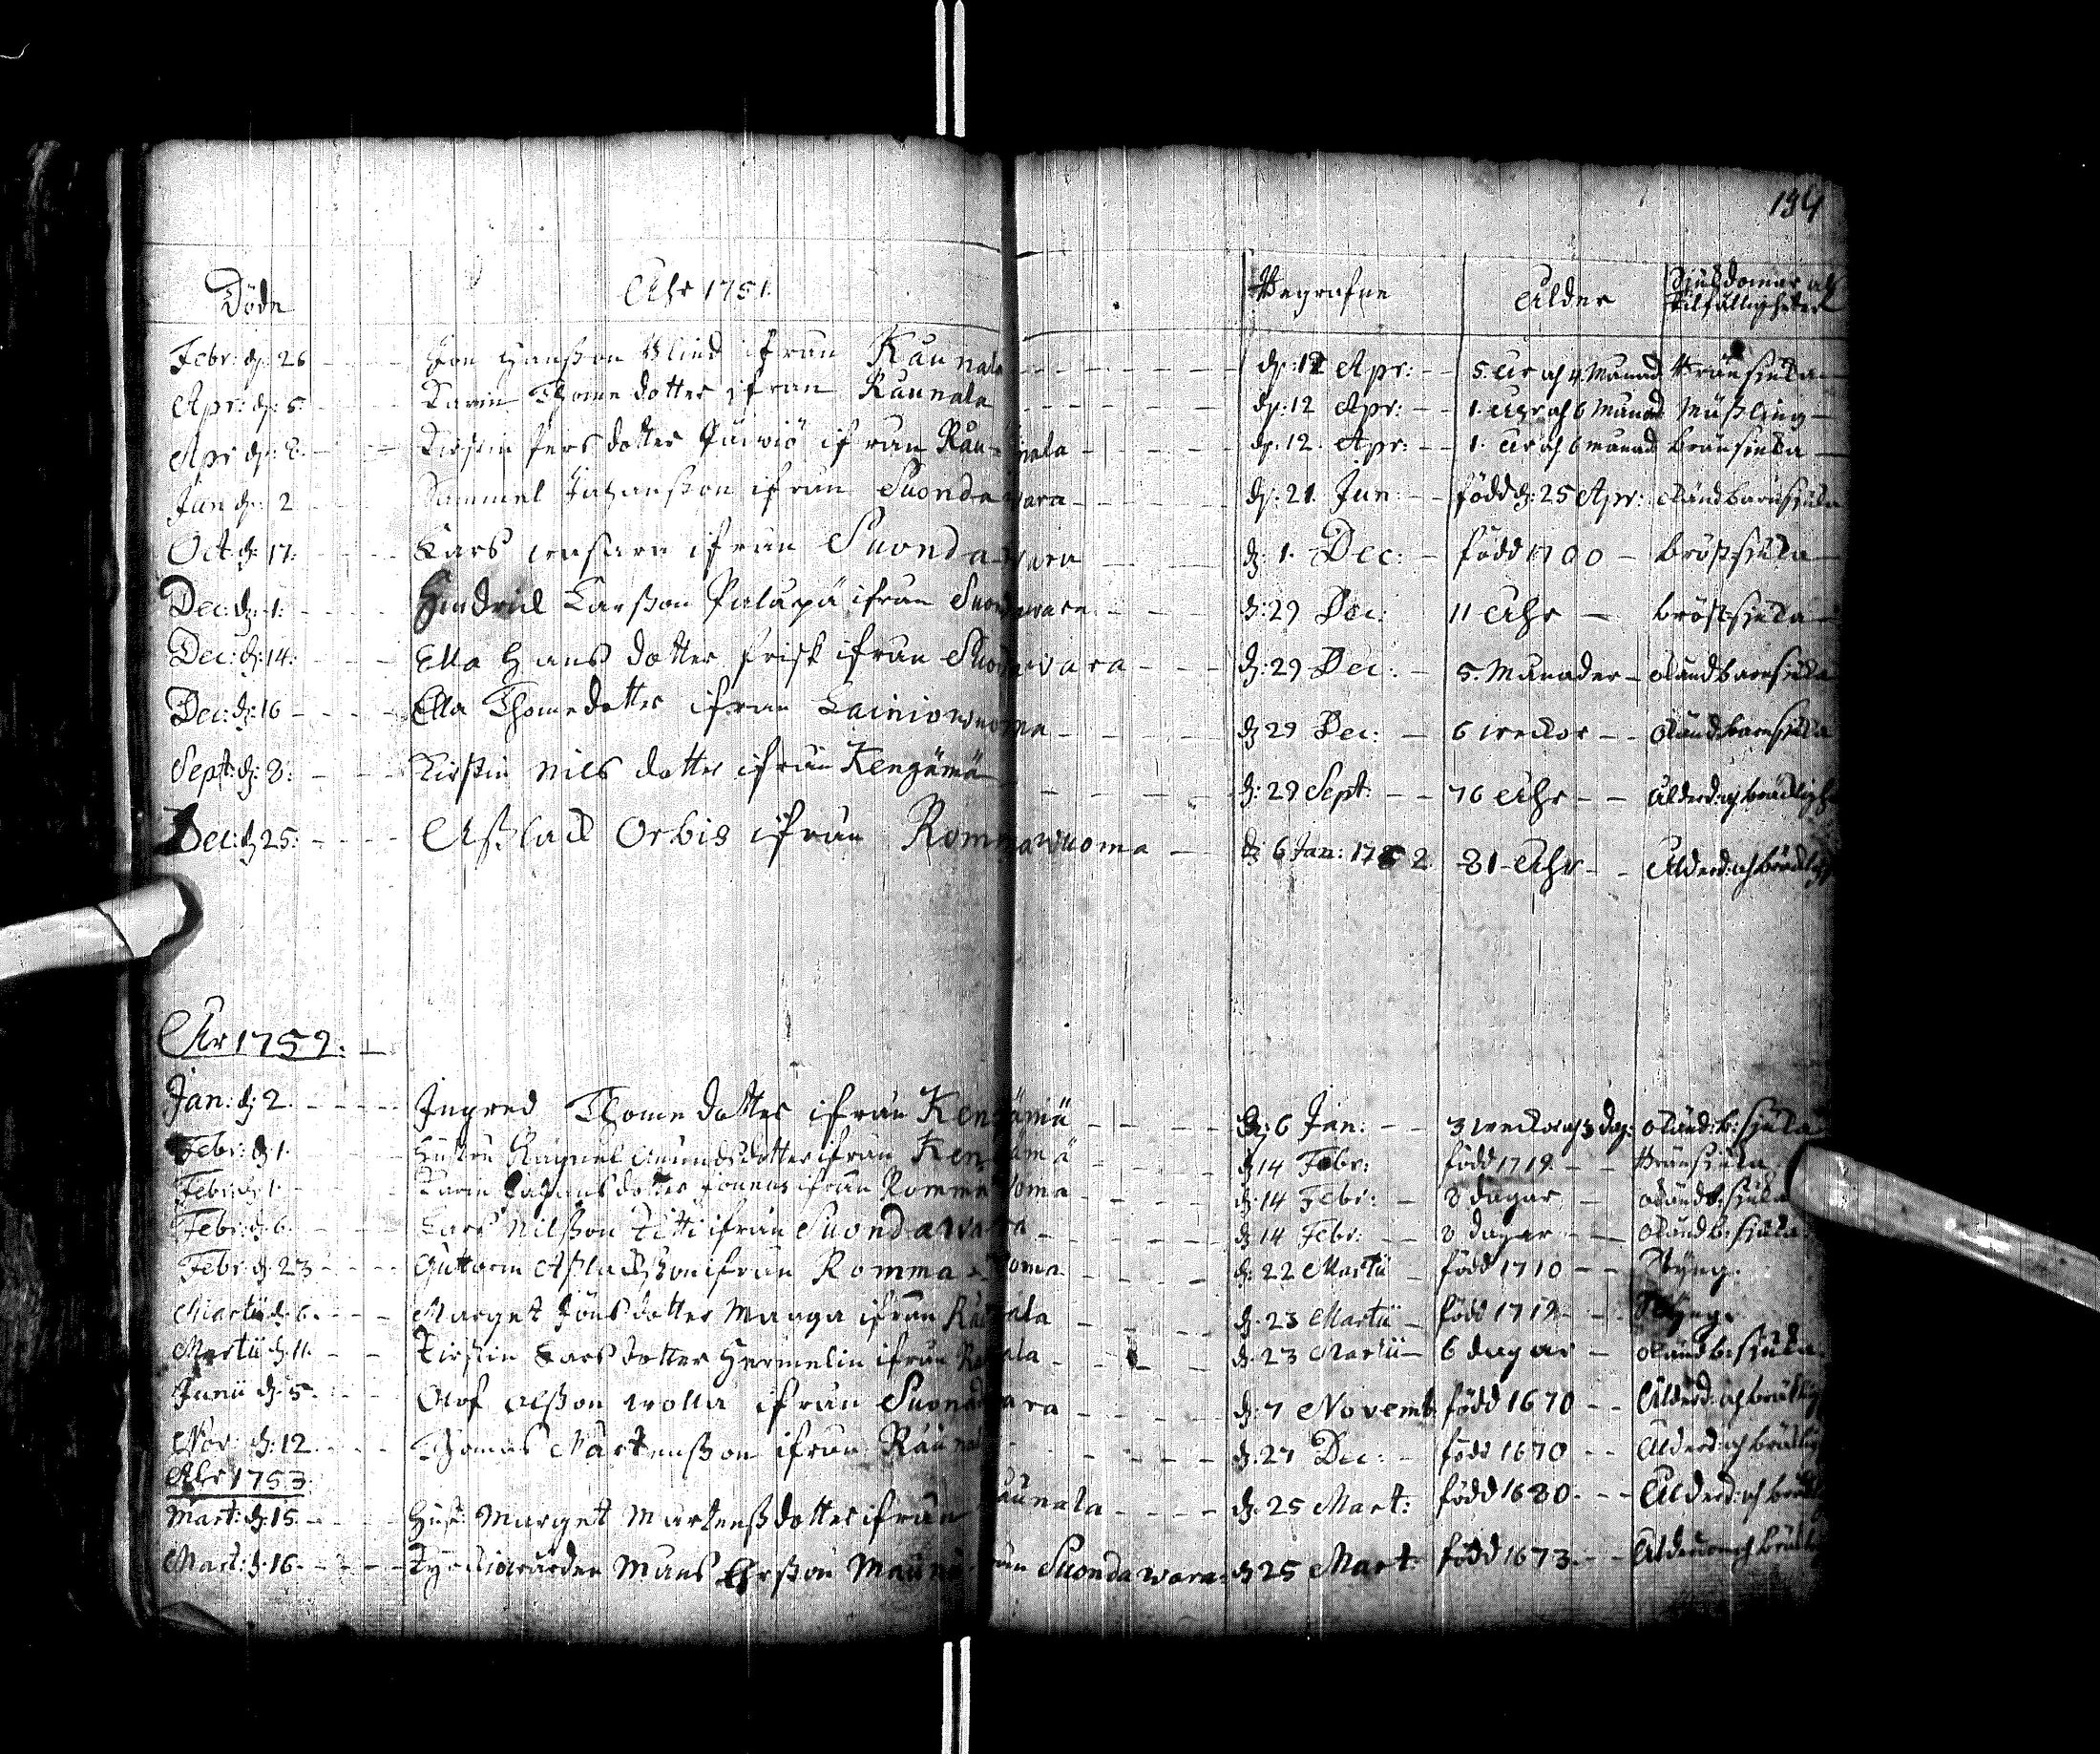 134
Döde Åhr 1751. Begrafne Ålder Siukdomar och tilfälligheter
Febr: d: 26 Jon Hansson Blind ifrån Raunala d: 12 Apr: 5. År och 4 Månad Bränsiuka
Apr: d: 5 Karin Thomedotter ifrån Raunala d: 12 Apr: 1. Åhr och 6 Månad Mäßling
Apr d: 8 Kirstin Pers dotter ifrån Raunala d: 12. Apr: 1. År och 6 månad bränsiuka
Jun d: 2 Sammel Johansson ifrån Suondawara d: 21. Jun född d: 25 Apr: okänd barnsiuka
Oct d: 17. Lars ifrån Suondawara d: 1. Dec: född 1700 bröstsiuka
Dec: d: 1. Hindrick Larsson Palupä ifrån Suondawara d: 29 Dec: 11 Åhr bröstsiuka
Dec: d: 14. Ella Hans dotter frisk ifrån Suondawara d: 29 Dec: 5. Månader okänd barnsiuka
Dec: d: 16 Ella Thomedotter ifrån Lainiowuoma d: 29 Dec: 6 weckor okänd barnsiuka
Sept: d: 8. Kirstin Nils dotter ifrån Kengämä d: 29 Sept: 76 Åhr Ålderd: och bräckligh
Dec: d: 25. Aßlack Orbis ifrån Rommawuoma d: 6 Jan: 1752 81 Åhr Ålderd: och bräcklig
År 1752.
Jan: d: 2. Ingred Thomedotter ifrån Kengämä d: 6 Jan: 3 weckor och 3 dag: okänd: b: siuka
Febr: d: 1. Hustru Ragnel Amundsdotter ifrån Kengämä d: 14 Febr: född 1719 Bränsiuka
Febr: d: 1. Karin dotter ifrån Rommawoma d: 14 Febr: 8 dagar okänd b: siuka
Febr: d: 6. Lars Nilsson Titti ifrån Suondawara d: 14 Febr: 8 dagar okänd b: siuka
Febr: d: 23 Guttorm Aslacksson ifrån Rommawoma d: 22 Martii född 1710 Styng.
Martii d: 6. Marget Jöns dotter Manga ifrån Raunala d: 23 Martii född 1712 Styng.
Martii d: 11. Kirstin Lars dotter Hermelin ifrån Raunala d: 23 Martii 6 dagar okänd b: siuka
Junii d: 5. Olof Olsson wolla ifrån Suondawara d: 7 Novemb: född 1670 Ålderd: och bräcklig
Nov: d: 12. Thomas Mårtensson ifrån Raunala d: 27 Dec: född 1670 Ålderd: och bräcklig
Åhr 1753.
Mart: d: 15. Hust: Marget Mårtensdotter ifrån Raunala d: 25 Mart: född 1680 Ålderd: och bräckl
Mart: d: 16. Måns Ersson Maunu ifrån Suondawara: d: 25 Mart: född 1673 Ålderdom och bräckl